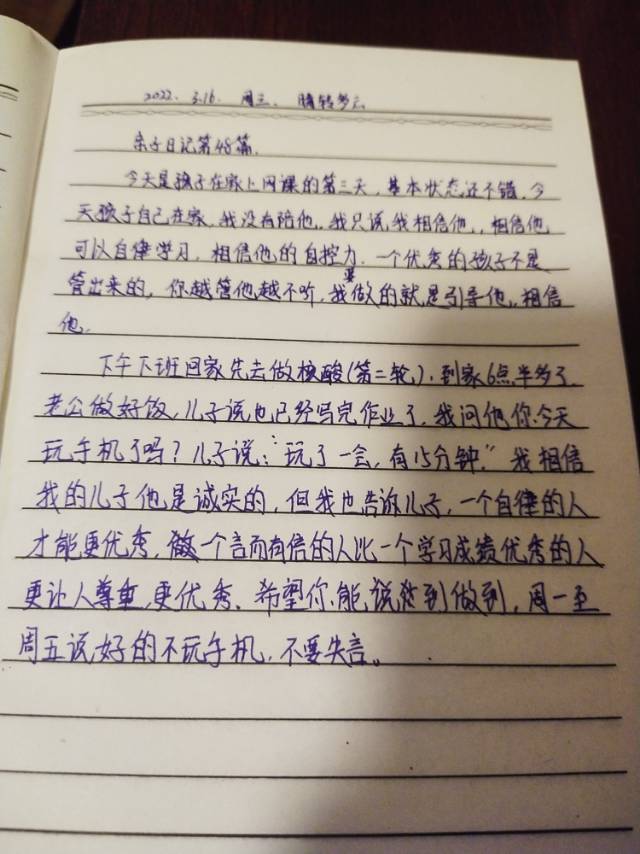 2022. 3.16. 周三、 晴转多云
亲子日记第48篇.
今天是孩子在家上网课的第三天，基本状态还不错.今
天孩子自己在家.我没有陪他.我只说我相信他，相信他
可以自律学习，相信他的自控力.一个优秀的孩子不是
管出来的，你越管他越不听，我要做的就是引导他，相信
他.
下午下班回家先去做核酸(第二轮)，到家6点半多了.
老公做好饭，儿子说也已经写完作业了.我问他你今天
玩手机了吗？儿子说："玩了一会，有15分钟."我相信
我的儿子他是诚实的，但我也告诉儿子，一个自律的人
才能更优秀，做一个言而有信的人比一个学习成绩优秀的人
更让人尊重，更优秀、希望你能说到做到，周一至
周五说好的不玩手机，不要失言。